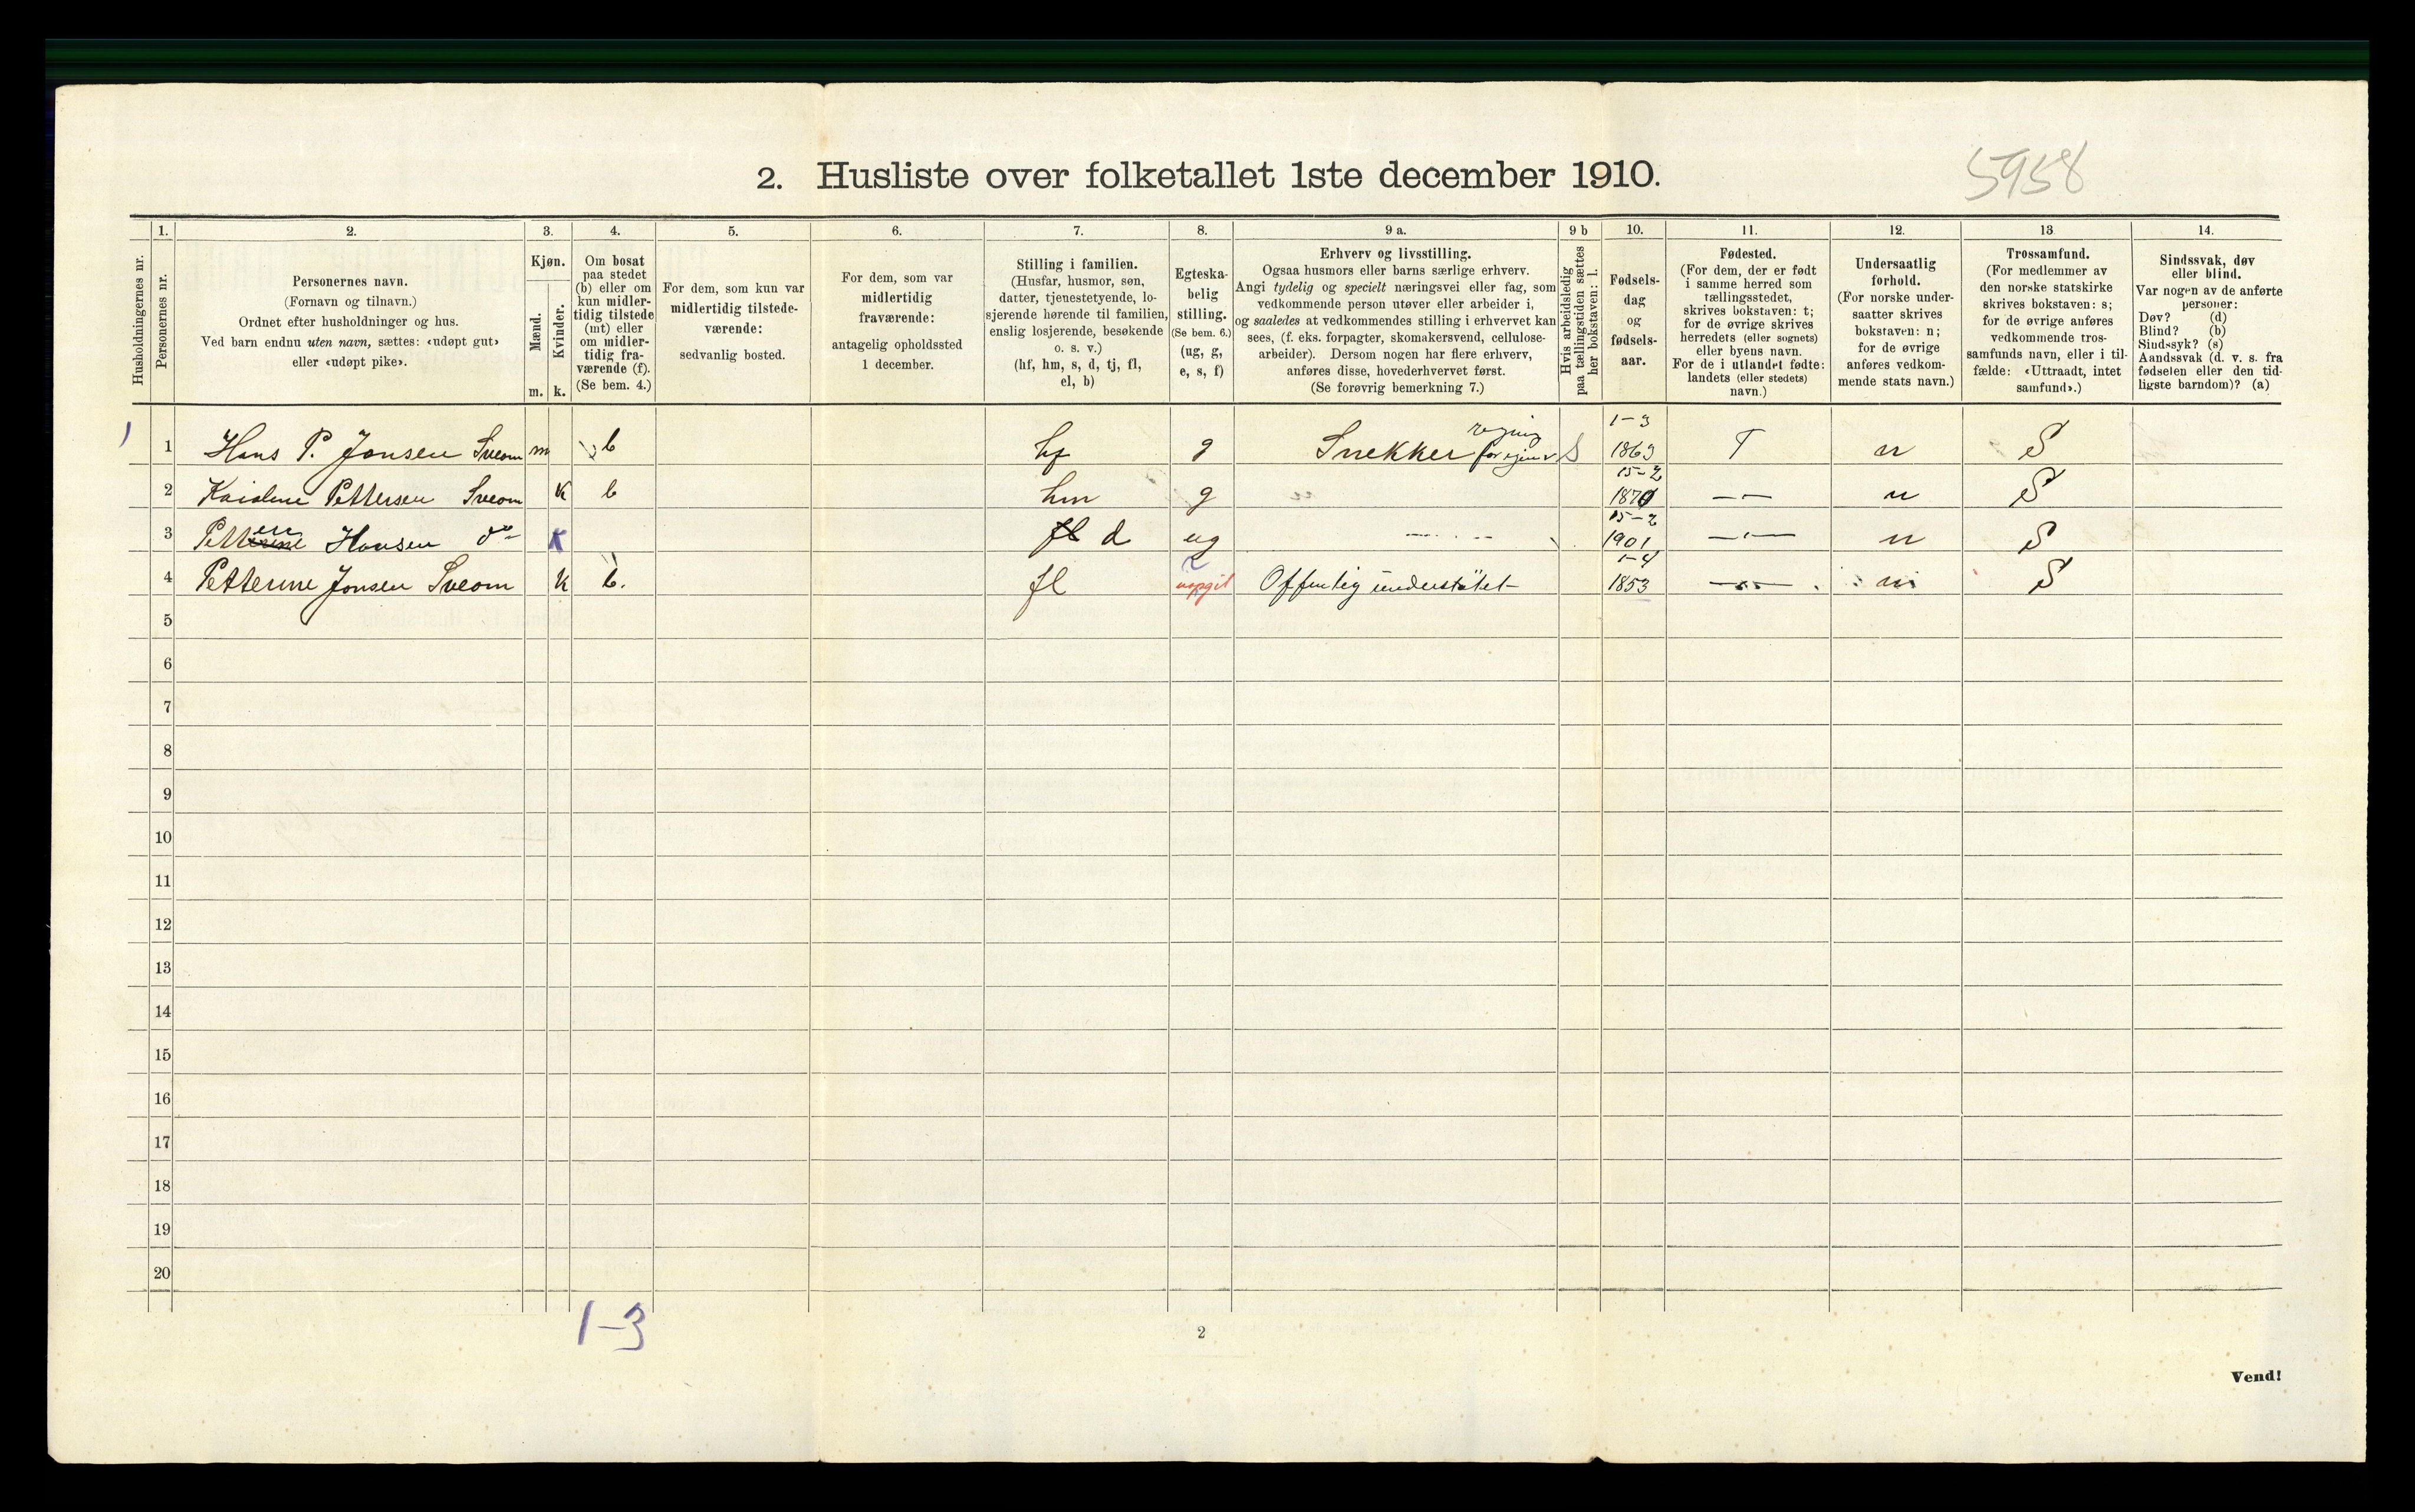 5958
2. Husliste over folketallet 1ste december 1910.
Husholdningernes nr.
1.
Personernes nr.
2.
Personernes navn.
(Fornavn og tilnavn.)
Ordnet efter husholdninger og hus.
Ved barn endnu uten navn, sættes: «udøpt gut»
eller «udøpt pike».
3.
Kjøn.
Mænd.
Kvinder.
m.
k.
4.
Om bosat
paa stedet
(b) eller om
kun midler-
tidig tilstede
(mt) eller
om midler-
tidig fra-
værende (f).
(Se bem. 4.)
5.
For dem, som kun var
midlertidig tilstede-
værende:
sedvanlig bosted.
6.
For dem, som var
midlertidig
fraværende:
antagelig opholdssted
1 december.
7.
Stilling i familien.
(Husfar, husmor, søn,
datter, tjenestetyende, lo-
sjerende hørende til familien,
enslig losjerende, besøkende
o. s. v.)
(hf, hm, s, d, tj, fl,
el, b)
8.
Egteska-
belig
stilling.
(Se bem. 6.)
(ug, g,
e, s, f)
9 a.
Erhverv og livsstilling.
Ogsaa husmors eller barns særlige erhverv.
Angi tydelig og specielt næringsvei eller fag, som
vedkommende person utøver eller arbeider i,
og saaledes at vedkommendes stilling i erhvervet kan
sees, (f. eks. forpagter, skomakersvend, cellulose-
arbeider). Dersom nogen har flere erhverv,
anføres disse, hovederhvervet først.
(Se forøvrig bemerkning 7.)
9 b
Hvis arbeidsledig
paa tællingstiden sættes
her bokstaven: l.
10.
Fødsels-
dag
og
fødsels-
aar.
11.
Fødested.
(For dem, der er født
i samme herred som
tællingsstedet,
skrives bokstaven: t;
for de øvrige skrives
herredets (eller sognets)
eller byens navn.
For de i utlandet fødte:
landets (eller stedets)
navn.)
12.
Undersaatlig
forhold.
(For norske under-
saatter skrives
bokstaven: n;
for de øvrige
anføres vedkom-
mende stats navn.)
13
Trossamfund.
(For medlemmer av
den norske statskirke
skrives bokstaven: s;
for de øvrige anføres
vedkommende tros-
samfunds navn, eller i til-
fælde: «Uttraadt, intet
samfund».)
14.
Sindssvak, døv
eller blind.
Var nogen av de anførte
personer:
Døv? (d)
Blind? (b)
Sindssyk? (s)
Aandssvak (d. v. s. fra
fødselen eller den tid-
ligste barndom)? (a)
1 1 Hans P. Jonsen Sveom m b hf g Snekker for egin regning S 1-3 1863 T n S
2 Kaisline Pettersen Sveom k b hm g 15-2 1870 —„— n S
3 Petteren Hansen do K fl d ug 15-2 1901 —„— n S
4 Petterine Jonsen Sveom k b. fl uopgit Offentlig understøtet 1-4 1853 —„— n S
5
6
7
8
9
10
11
12
13
14
15
16
17
18
19
20
1-3
2
Vend!